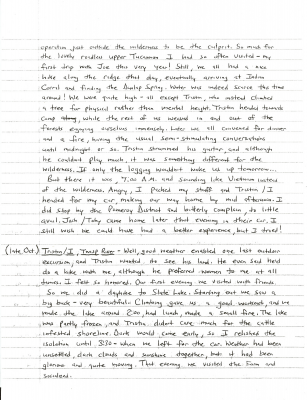 operation just outside the wilderness to be the culprit. So much for
the lovely roadless upper Tucannon I had so often visited - my
first trip with Joe this very year! Still, we all had a nice
hike along the ridge that day, eventually arriving at Indian
Corral and finding the Dunlap Spring. Water was indeed scarce this time
around! We were quite high - all except Tristin, who instead climbed
a tree for physical rather than mental height. Tristin headed towards
camp along, while the rest of us weaved in and out of the
forests enjoying ourselves immensely. Later we all convened for dinner
and a fire, having the usual semi-stimulating conversations
until midnight or so. Tristin strummed his guitar, and although
he couldn't play much, it was something different for the
wilderness. If only the loggers wouldn't wake us up tomorrow...
But there it was, 7:00 A.M. and sounding like Vietnam instead
of the wilderness. Angry, I packed my stuff and Tristin / I
headed for my car, making our way home by mid afternoon. I
did stop by the Pomeroy District and bitterly complain, to little
avail. Josh / Toby came home later that evening in their car. I
still wish we could have had a better experience, but I tried!
(late Oct.) Tristin / I, Trout Run - Well, good weather enabled one last outdoor
excursion, and Tristin wanted to see his land. He even said he'd
do a hike with me, although he preferred women to me at all
times. I felt so honored. Our first evening we visited with friends.
So we did a dayhike to Slate Lake. Starting out we saw a
big buck - very beautiful. Climbing gave us a good workout, and we
made the lake around 2:00, had lunch, made a small fire. The lake
was partly frozen, and Tristin didn't care much for the cattle
infested shoreline. Dark would come early, so I relished the
isolation until 3:30 - when we left for the car. Weather had been
unsettled, dark clouds and sunshine together, but it had been
glorious and quite moving. That evening we visited the Farm and